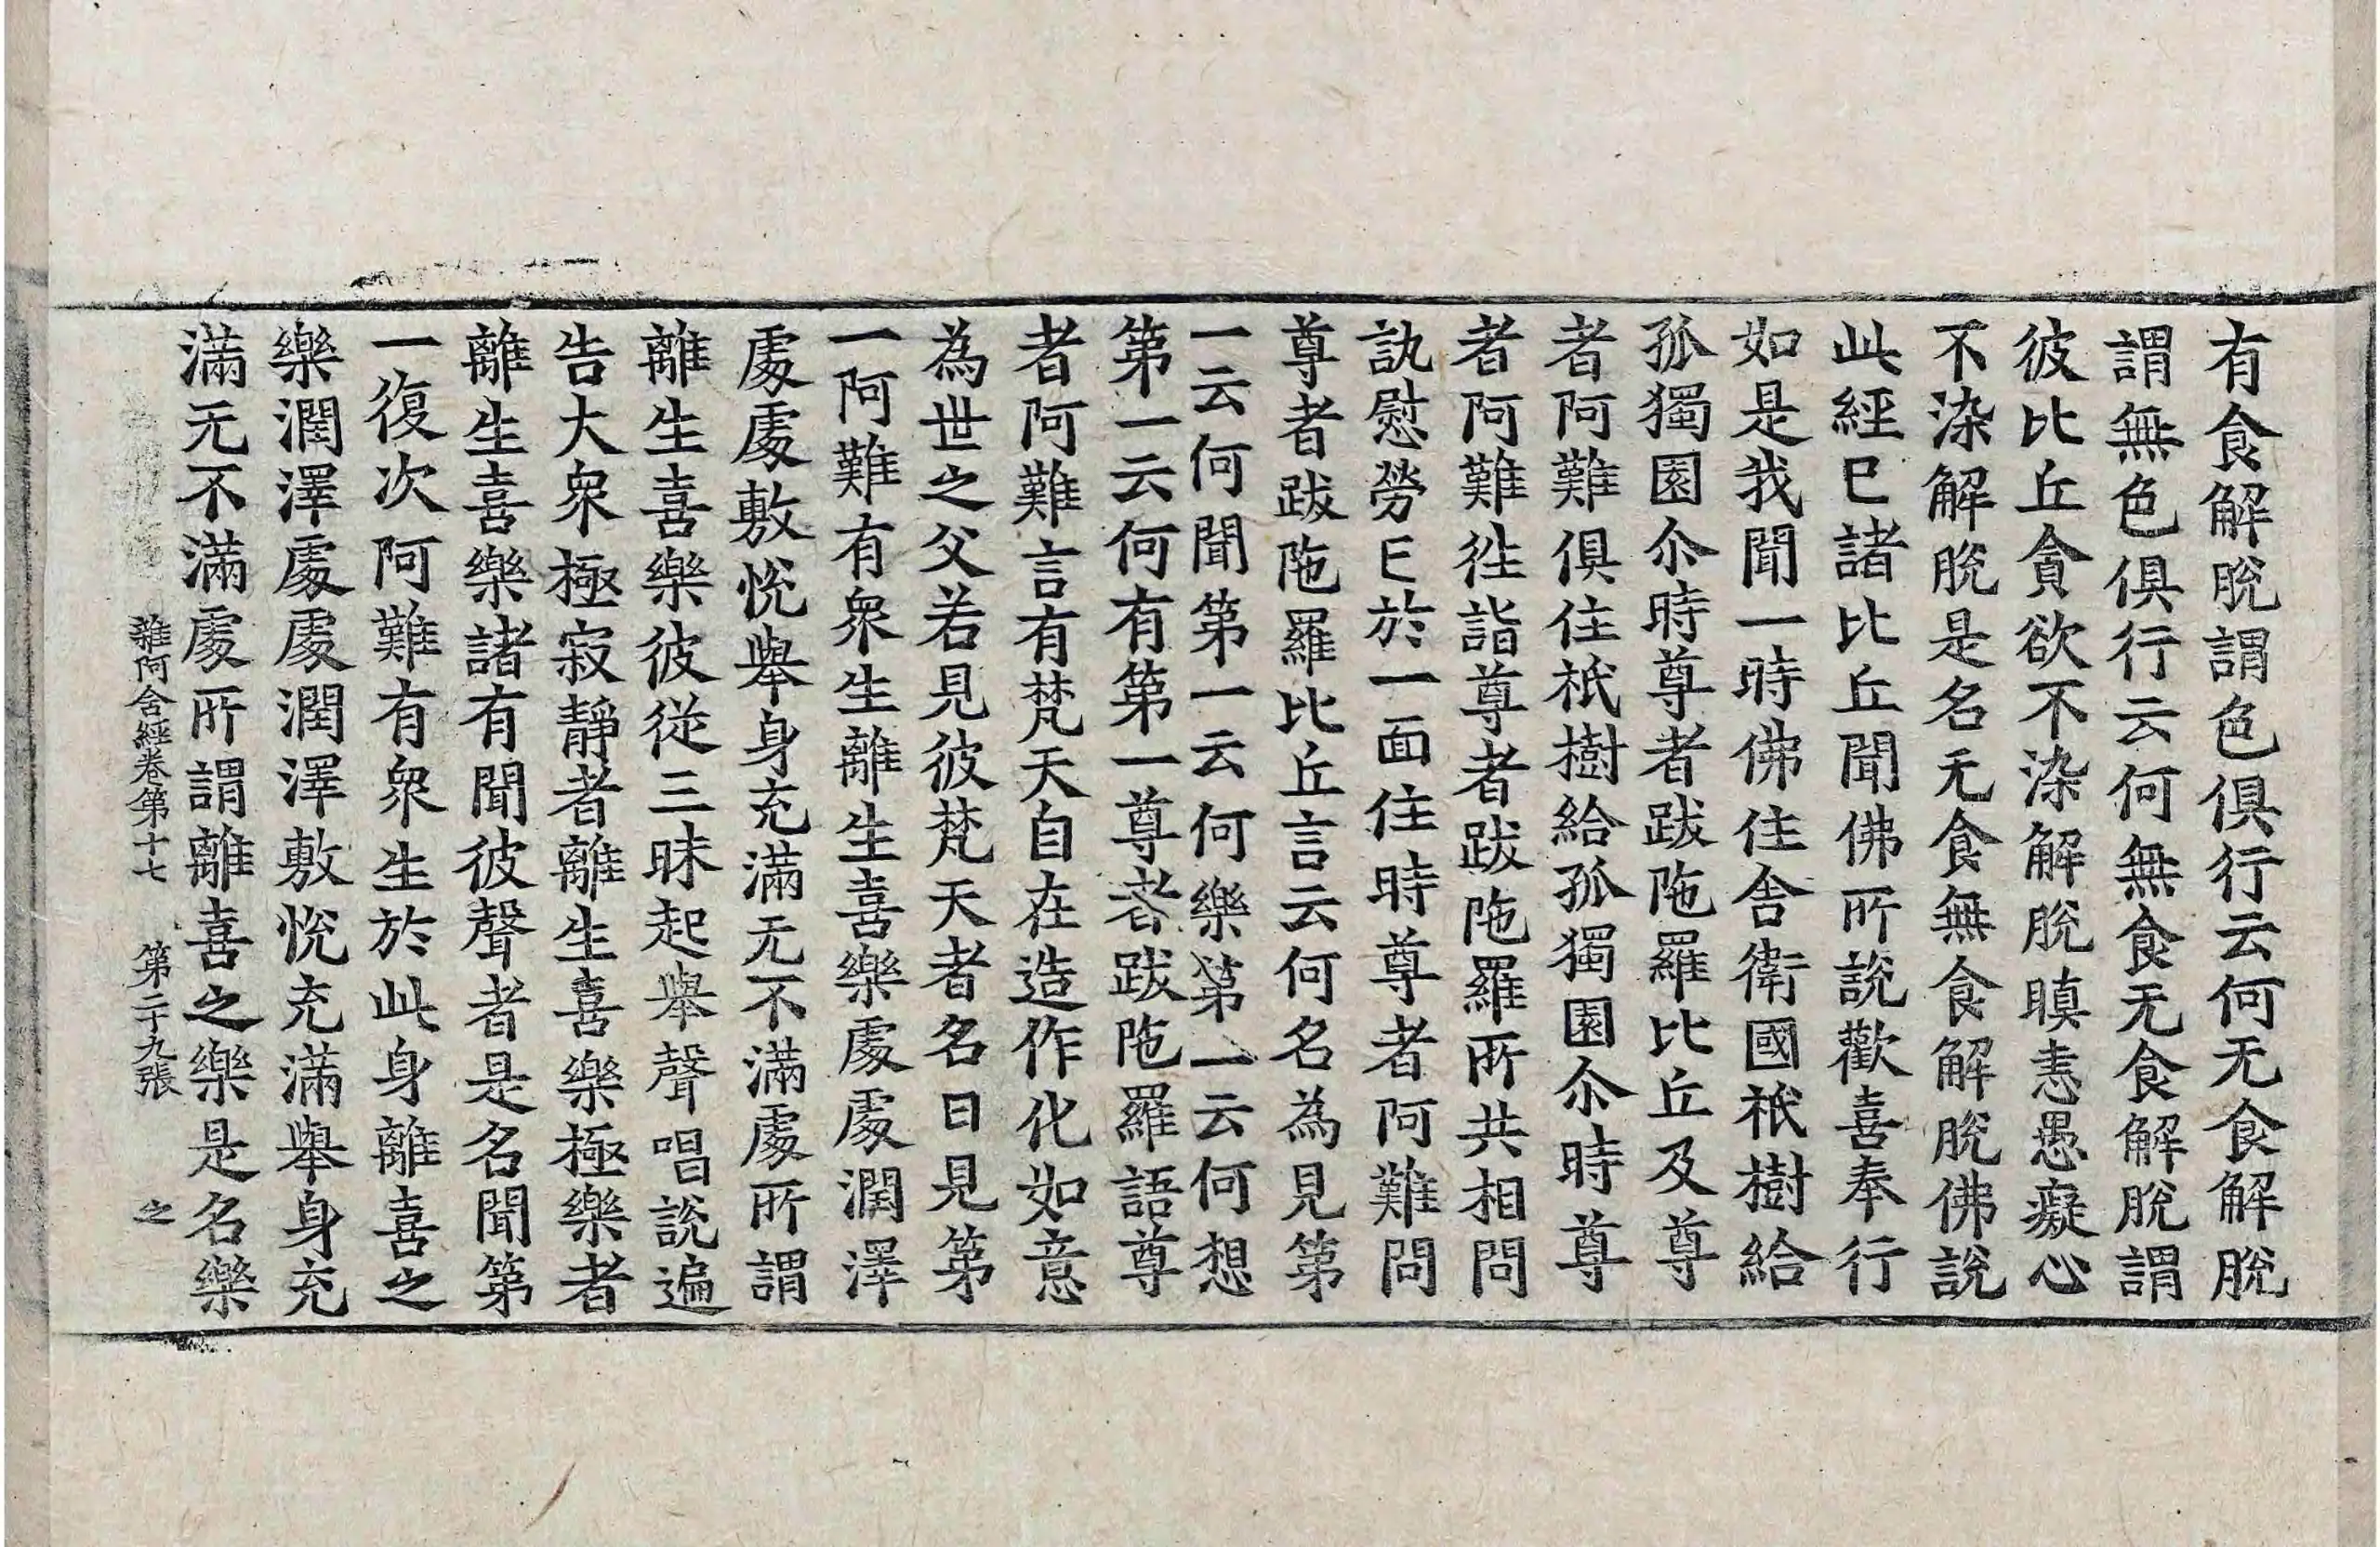 有食解脫謂色俱行云何无食解脫
謂無色俱行云何無食无食解脫謂
彼比丘貪欲不染解脫瞋恚愚癡心
不染解脫是名无食無食解脫佛說
此經已諸比丘聞佛所說歡喜奉行
如是我聞一時佛住舍衛國祇樹給
孤獨園尒時尊者跋陁羅比丘及尊
者阿難俱住祇樹給孤獨園尒時尊
者阿難往詣尊者跋陁羅所共相問
訊慰勞已於一面住時尊者阿難問
尊者跋陁羅比丘言云何名為見第
一云何聞第一云何樂第一云何想
第一云何有第一尊者跋陁羅語尊
者阿難言有梵天自在造作化如意
為世之父若見彼梵天者名曰見第
一阿難有眾生離生喜樂處處潤澤
處處敷悅舉身充滿无不滿處所謂
離生喜樂彼從三昧起舉聲唱說遍
告大眾極寂靜者離生喜樂極樂者
離生喜樂諸有聞彼聲者是名聞第
一復次阿難有眾生於此身離喜之
樂潤澤處處潤澤敷悅充滿舉身充
滿无不滿處所謂離喜之樂是名樂
雜阿含經卷第十七　第二十九張　之